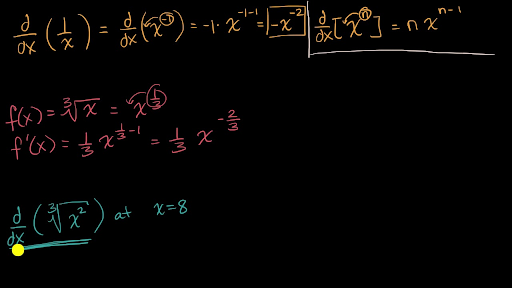 d/dx (1/x) = d/dx (x^-1) = -1 · x^-1-1 = -x^-2
d/dx [x^n] = n x^n-1
f(x) = ∛x = x^1/3
f'(x) = 1/3 x^1/3-1 = 1/3 x^-2/3
d/dx (∛x²) at x=8